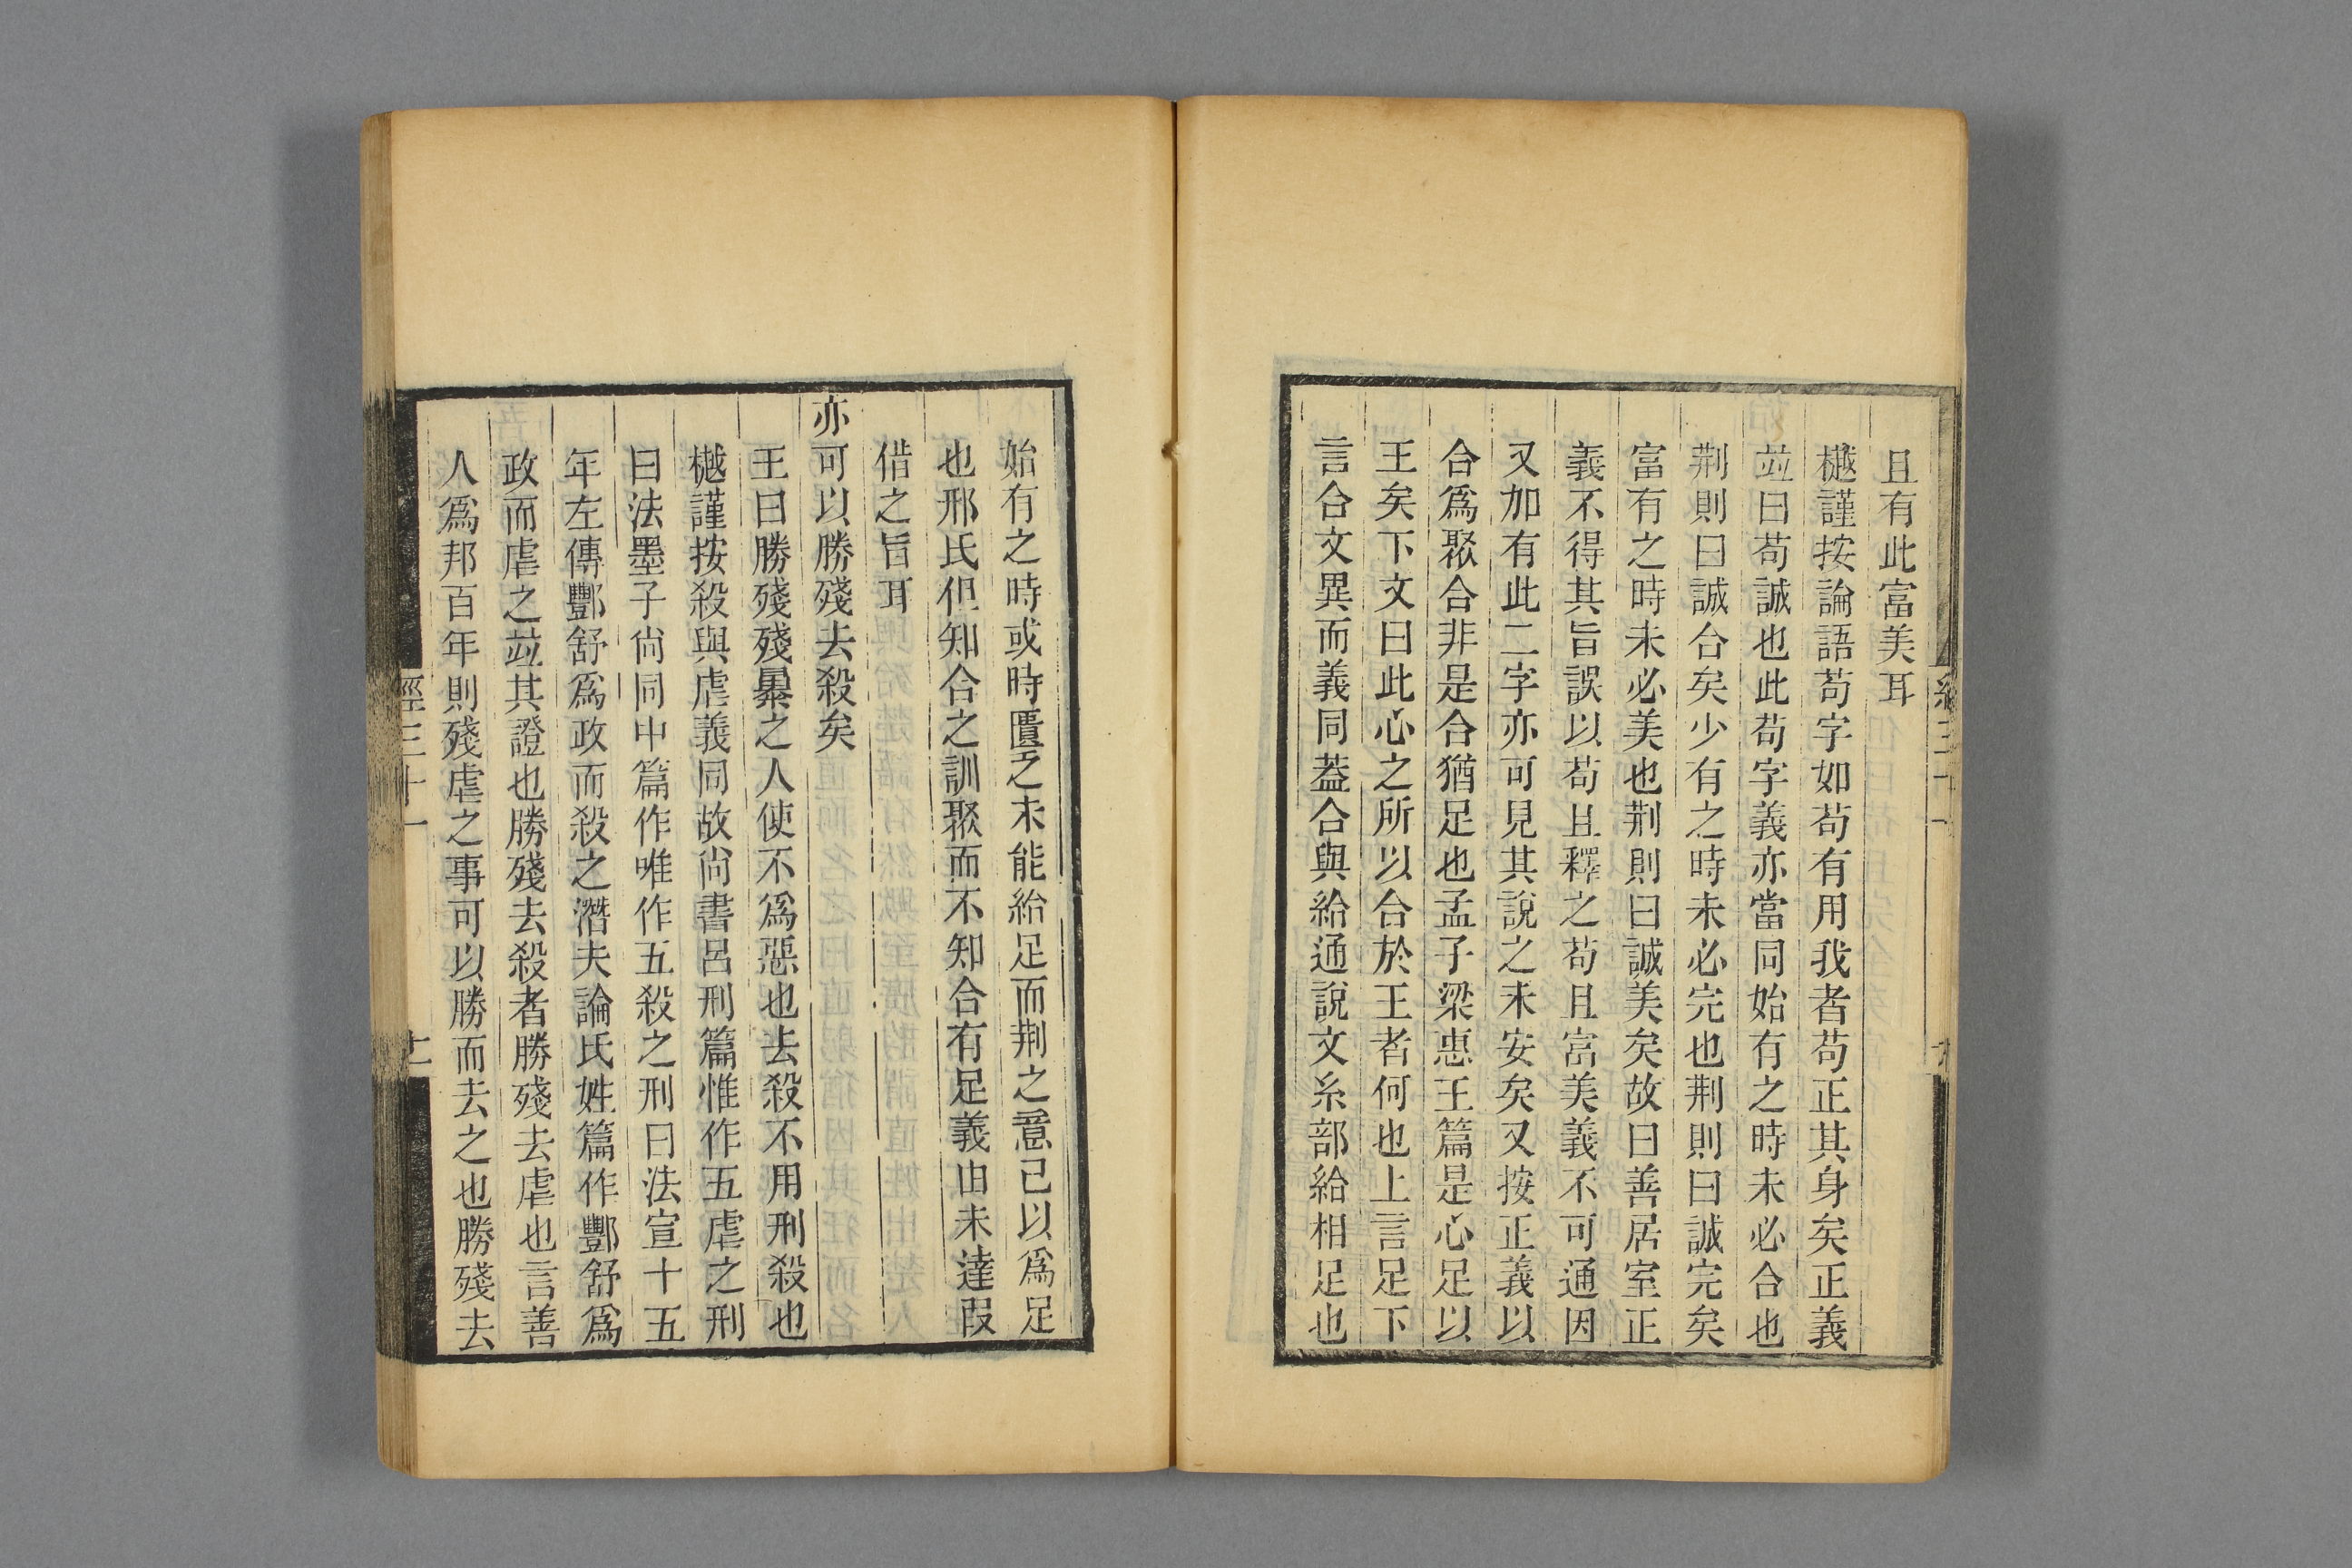 且有此富美耳
樾謹按論語苟字如苟有用我者苟正其身矣正義
竝曰苟誠也此苟字義亦當同始有之時未必合也
荆則曰誠合矣少有之時未必完也荆則曰誠完矣
富有之時未必美也荆則曰誠美矣故曰善居室正
義不得其旨誤以苟且釋之苟且富美義不可通因
又加有此二字亦可見其說之未安矣又按正義以
合爲聚合非是合猶足也孟子梁惠王篇是心足以
王矣下文曰此心之所以合於王者何也上言足下
言合文異而義同葢合與給通說文糸部給相足也
始有之時或時匱乏未能給足而荆之意已以爲足
也邢氏但知合之訓聚而不知合有足義由未達叚
借之旨耳
亦可以勝殘去殺矣
王曰勝殘殘㬥之人使不爲惡也去殺不用刑殺也
樾謹按殺與虐義同故尚書呂刑篇惟作五虐之刑
曰法墨子尚同中篇作唯作五殺之刑曰法宣十五
年左傳酆舒爲政而殺之潛夫論氏姓篇作酆舒爲
政而虐之竝其證也勝殘去殺者勝殘去虐也言善
人爲邦百年則殘虐之事可以勝而去之也勝殘去
經三十一